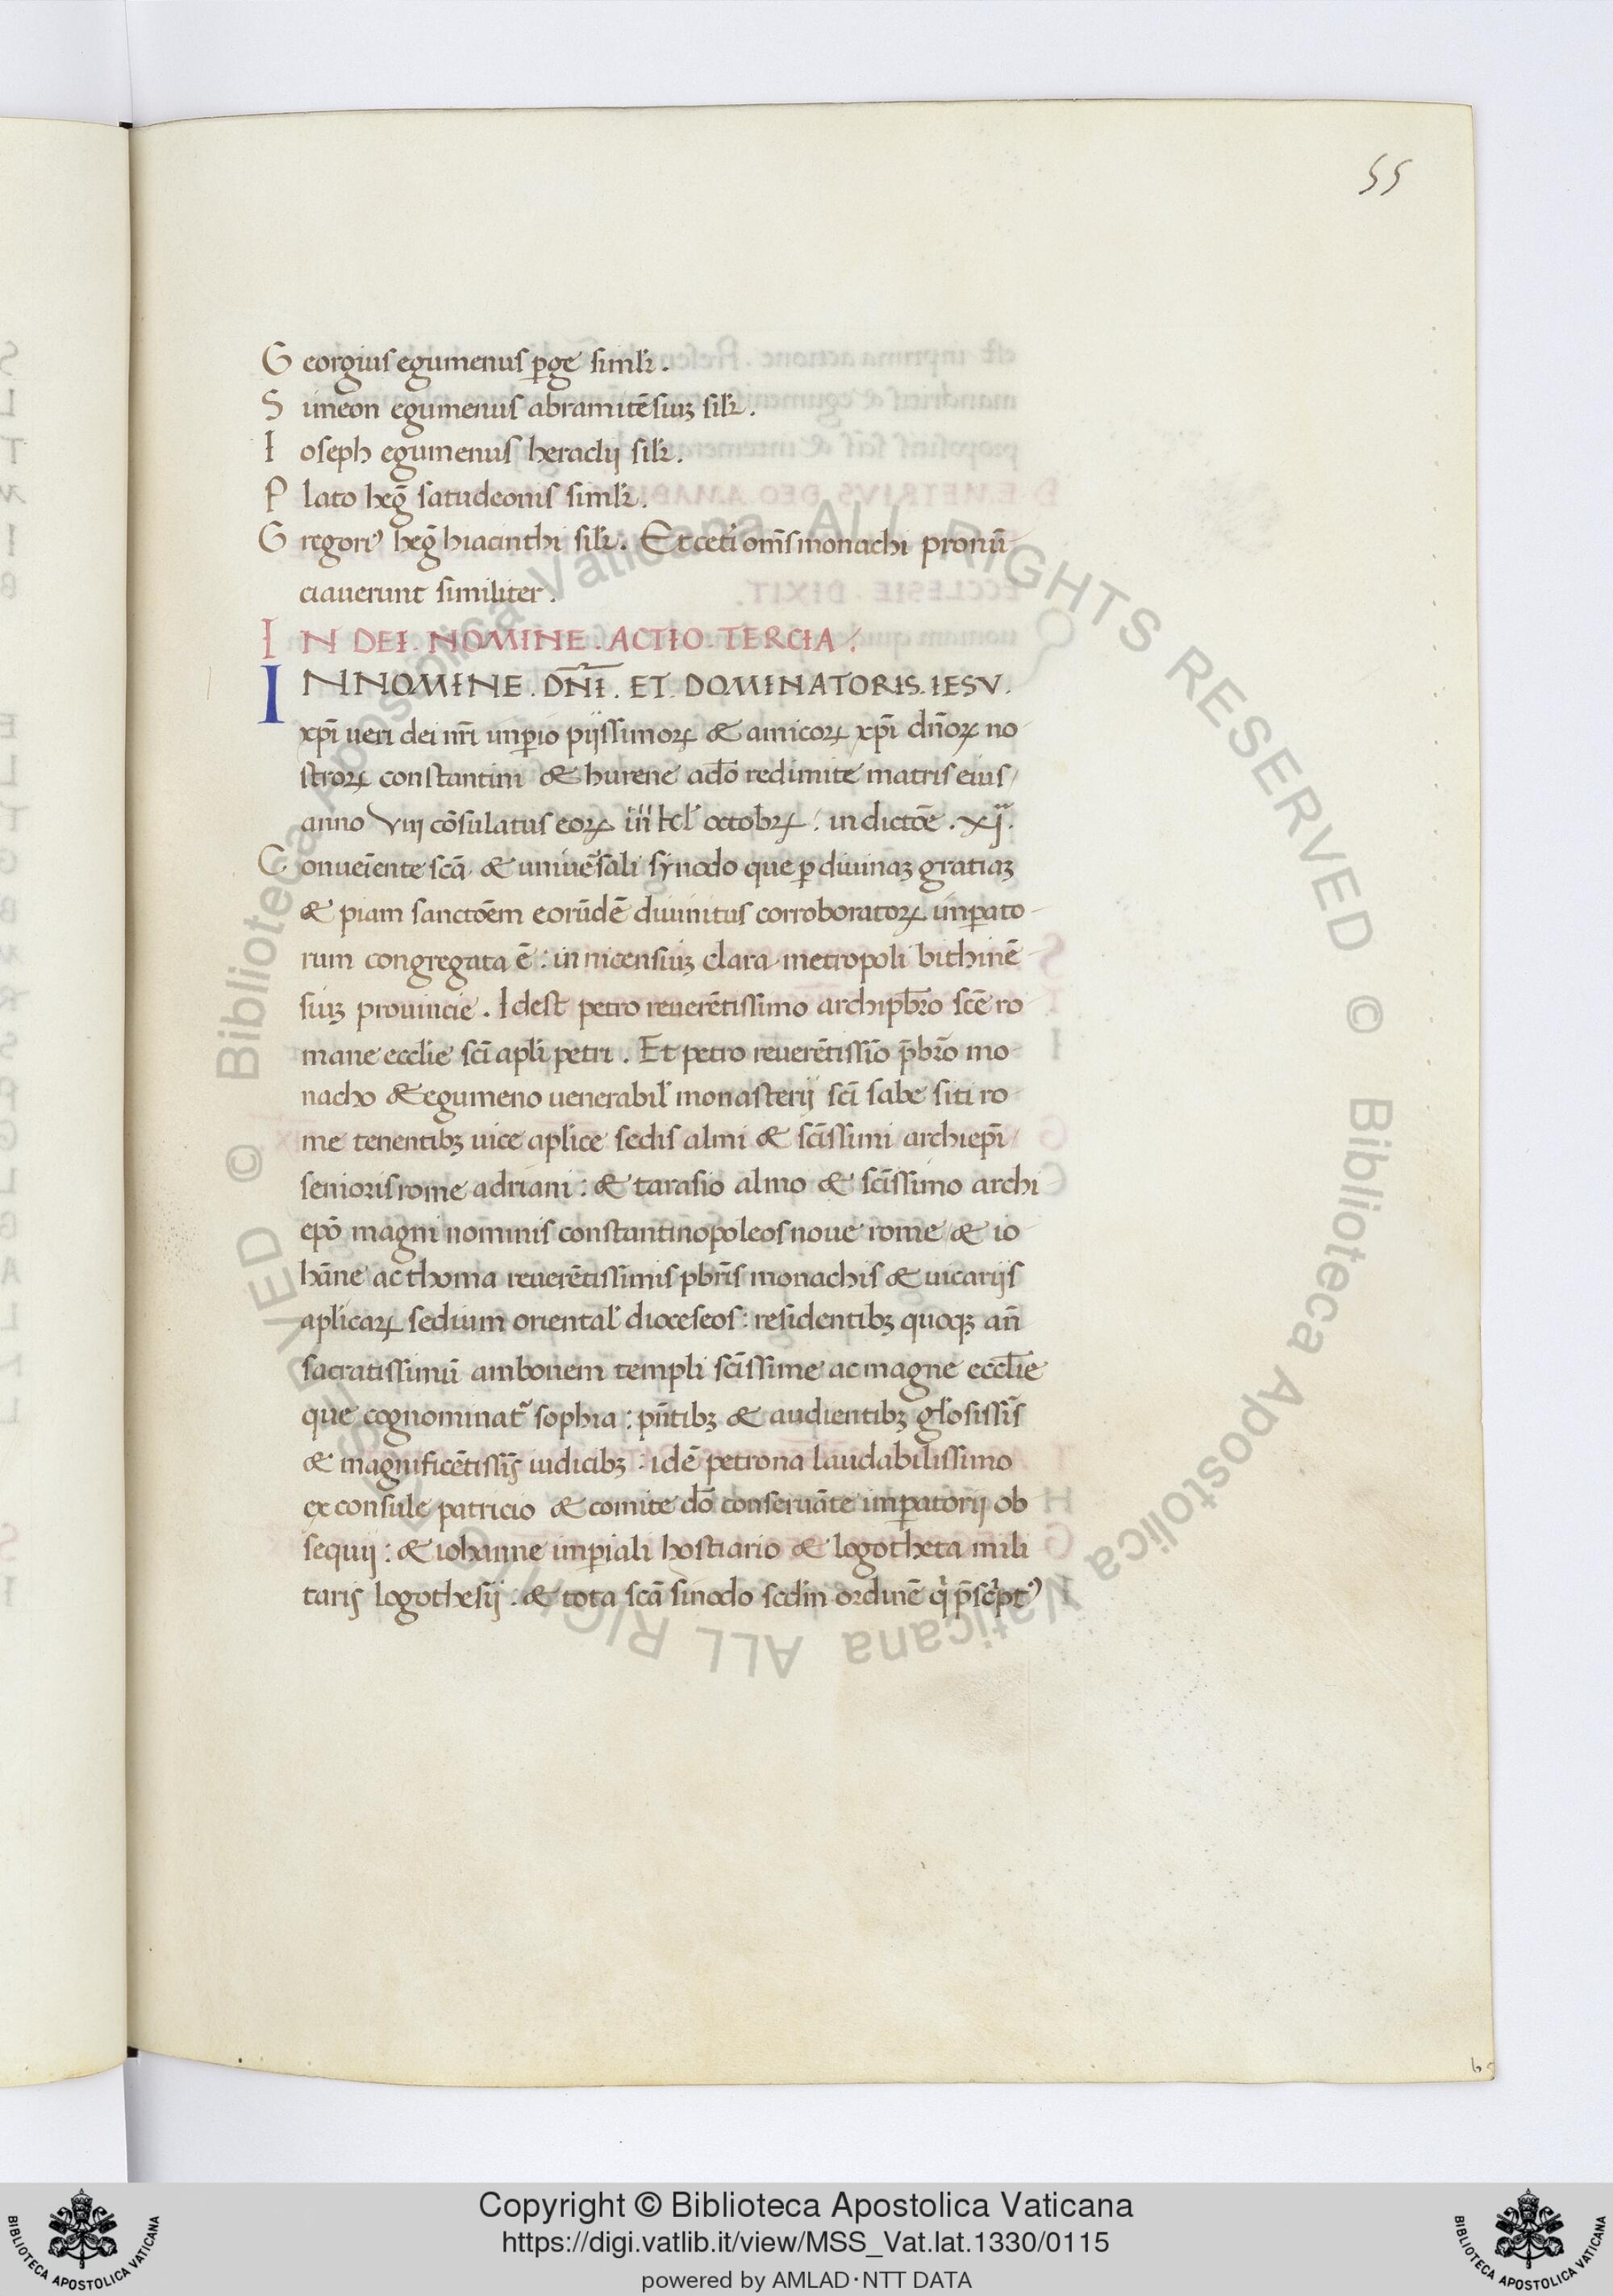 55
Georgius egumenus ꝑge simlr̃.
Simeon egumenus abramitẽsiuꝫ silr̃.
Ioseph egumenus heraclij silr̃.
Plato heg̃ satudeonis simlr̃.
Gregoriꝰ heg̃ hiacinthi silr̃. Et ceti om̃s monachi pronũ
ciauerunt similiter.
IN DEI. NOMINE. ACTIO. TERCIA.
IN NOMINE. DÑI. ET. DOMINATORIS. IESV.
xp̃i ueri dei nr̃i imꝑio pijssimoꝝ & amicoꝝ xp̃i dñoꝝ no
stroꝝ constantini & hurene adõ redimite matris eius
anno Viij cõsulatus eoꝝ iiij kl̃ octobꝝ. indictõe. xj.
Conueiẽnte scã & uniuẽsali synodo que ꝑ diuinaꝫ gratiaꝫ
& piam sanctõem eorũdẽ diuinitus corroboratoꝝ imꝑato
rum congregata ẽ: in nicensiuꝫ clara metropoli bithinẽ
siuꝫ prouincie. Idest petro reuerẽtissimo archipb̃ro scẽ ro
mane ecclie sci᷈ apl̃i petri. Et petro reuerẽtissĩo p̃bro mo
nacho & egumeno uenerabil̃ monasterij sci᷈ sabe siti ro
me tenentibꝫ uice aplice sedis almi & sci᷈ssimi archiep̃i
senioris rome adriani: & tarasio almo & sci᷈ssimo archi
ep̃o magni nominis constantinopoleos noue rome & io
hãne ac thoma reuerẽtissimis pbr̃is monachis & uicarijs
aplicaꝝ sedium oriental̃ dioceseos: residentibꝫ quoqꝫ añ
sacratissimũ ambonem templi sci᷈ssime ac magne eccl̃ie
que cognominat᷑ sophia: pñtibꝫ & audientibꝫ gl̃osissĩs
& magnificẽtissĩs iudicibꝫ. idẽ petrona laudabilissimo
ex consule patricio & comite dõ conseruãte imꝑatorij ob
sequij: & iohanne imꝑiali hostiario & logotheta mili
taris logothesij. & tota scã sinodo scdm̃ ordinẽ q̇ p̃sc̓ptꝰ
Copyright © Biblioteca Apostolica Vaticana
https://digi.vatlib.it/view/MSS_Vat.lat.1330/0115
powered by AMLAD·NTT DATA